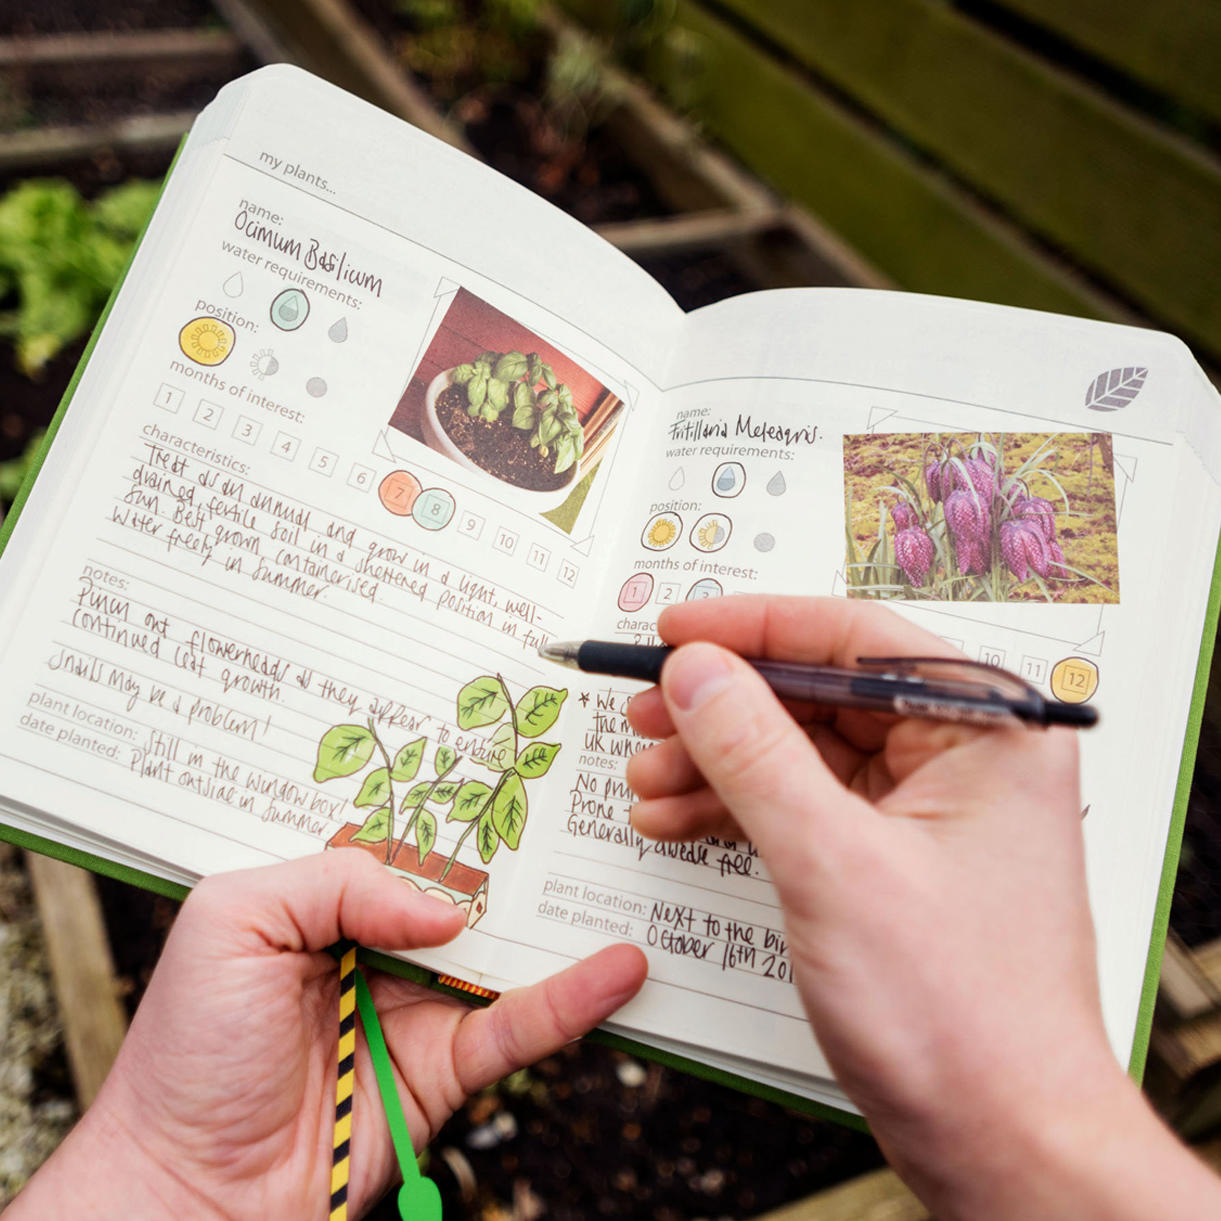 my plants...
name:
Ocimum Basilicum
water requirements:
position:
months of interest:
1 2 3 4 5 6 7 8 9 10 11 12
characteristics:
Treat as an annual and grow in a light, well-
drained, fertile soil in a sheltered position in full
sun. Best grown containerised.
Water freely in summer.
notes:
Pinch out flowerheads as they appear to ensure
continued leaf growth.
Snails may be a problem!
plant location: Still in the window box!
date planted: Plant outside in summer.
name:
Fritillaria Meleagris.
water requirements:
position:
months of interest:
1 2 3 10 11 12
charac
* We
the
UK where
notes:
No
Prone
Generally disease free.
plant location: Next to the
date planted: October 16th 201